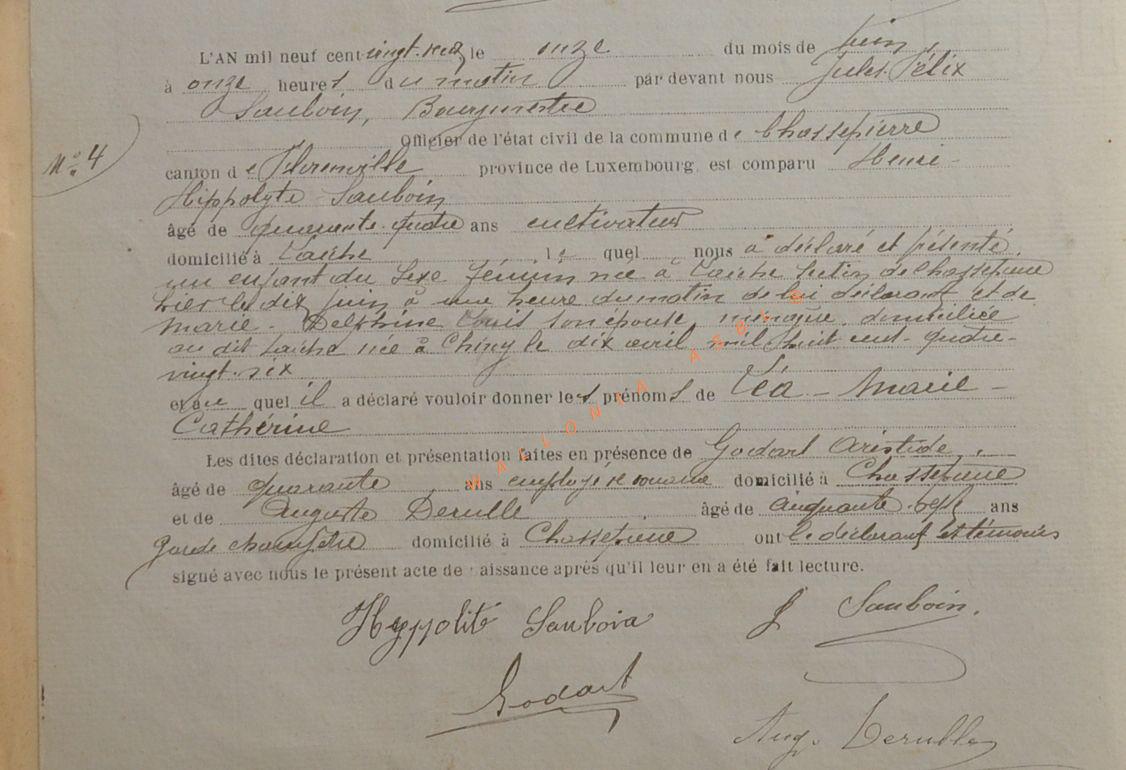 L'AN mil neuf cent vingt- le onze du mois de juin
à onze heures du matin par devant nous Jules Félix
Sauboin, Bourgmestre
Officier de l'état civil de la commune de Chassepierre
N° 4
canton de Florenville province de Luxembourg, est comparu Henri-
Hippolyte Sauboin
âgé de quarante-quatre ans cultivateur
domicilié à Laiche le quel nous a déclaré et présenté
un enfant du sexe féminin née à Laiche section de Chassepierre
hier le dix juin à une heure du matin de lui déclarant et de
Marie-Delphine son épouse ménagère domiciliée
au dit Laiche née à Chiny le dix avril mil huit cent quatre-
vingt-six
et au quel il a déclaré vouloir donner les prénoms de Léa-Marie-
Cathérine
Les dites déclaration et présentation faites en présence de Godart Aristide,
âgé de quarante ans employé de douane domicilié à Chassepierre
et de Auguste Derulle âgé de cinquante-sept ans
garde champêtre domicilié à Chassepierre ont le déclarant et témoins
signé avec nous le présent acte de naissance après qu'il leur en a été fait lecture.
Hyppolité Sauboin J Sauboin.
Godart
Aug. Derulle
WALLONIA ASBL